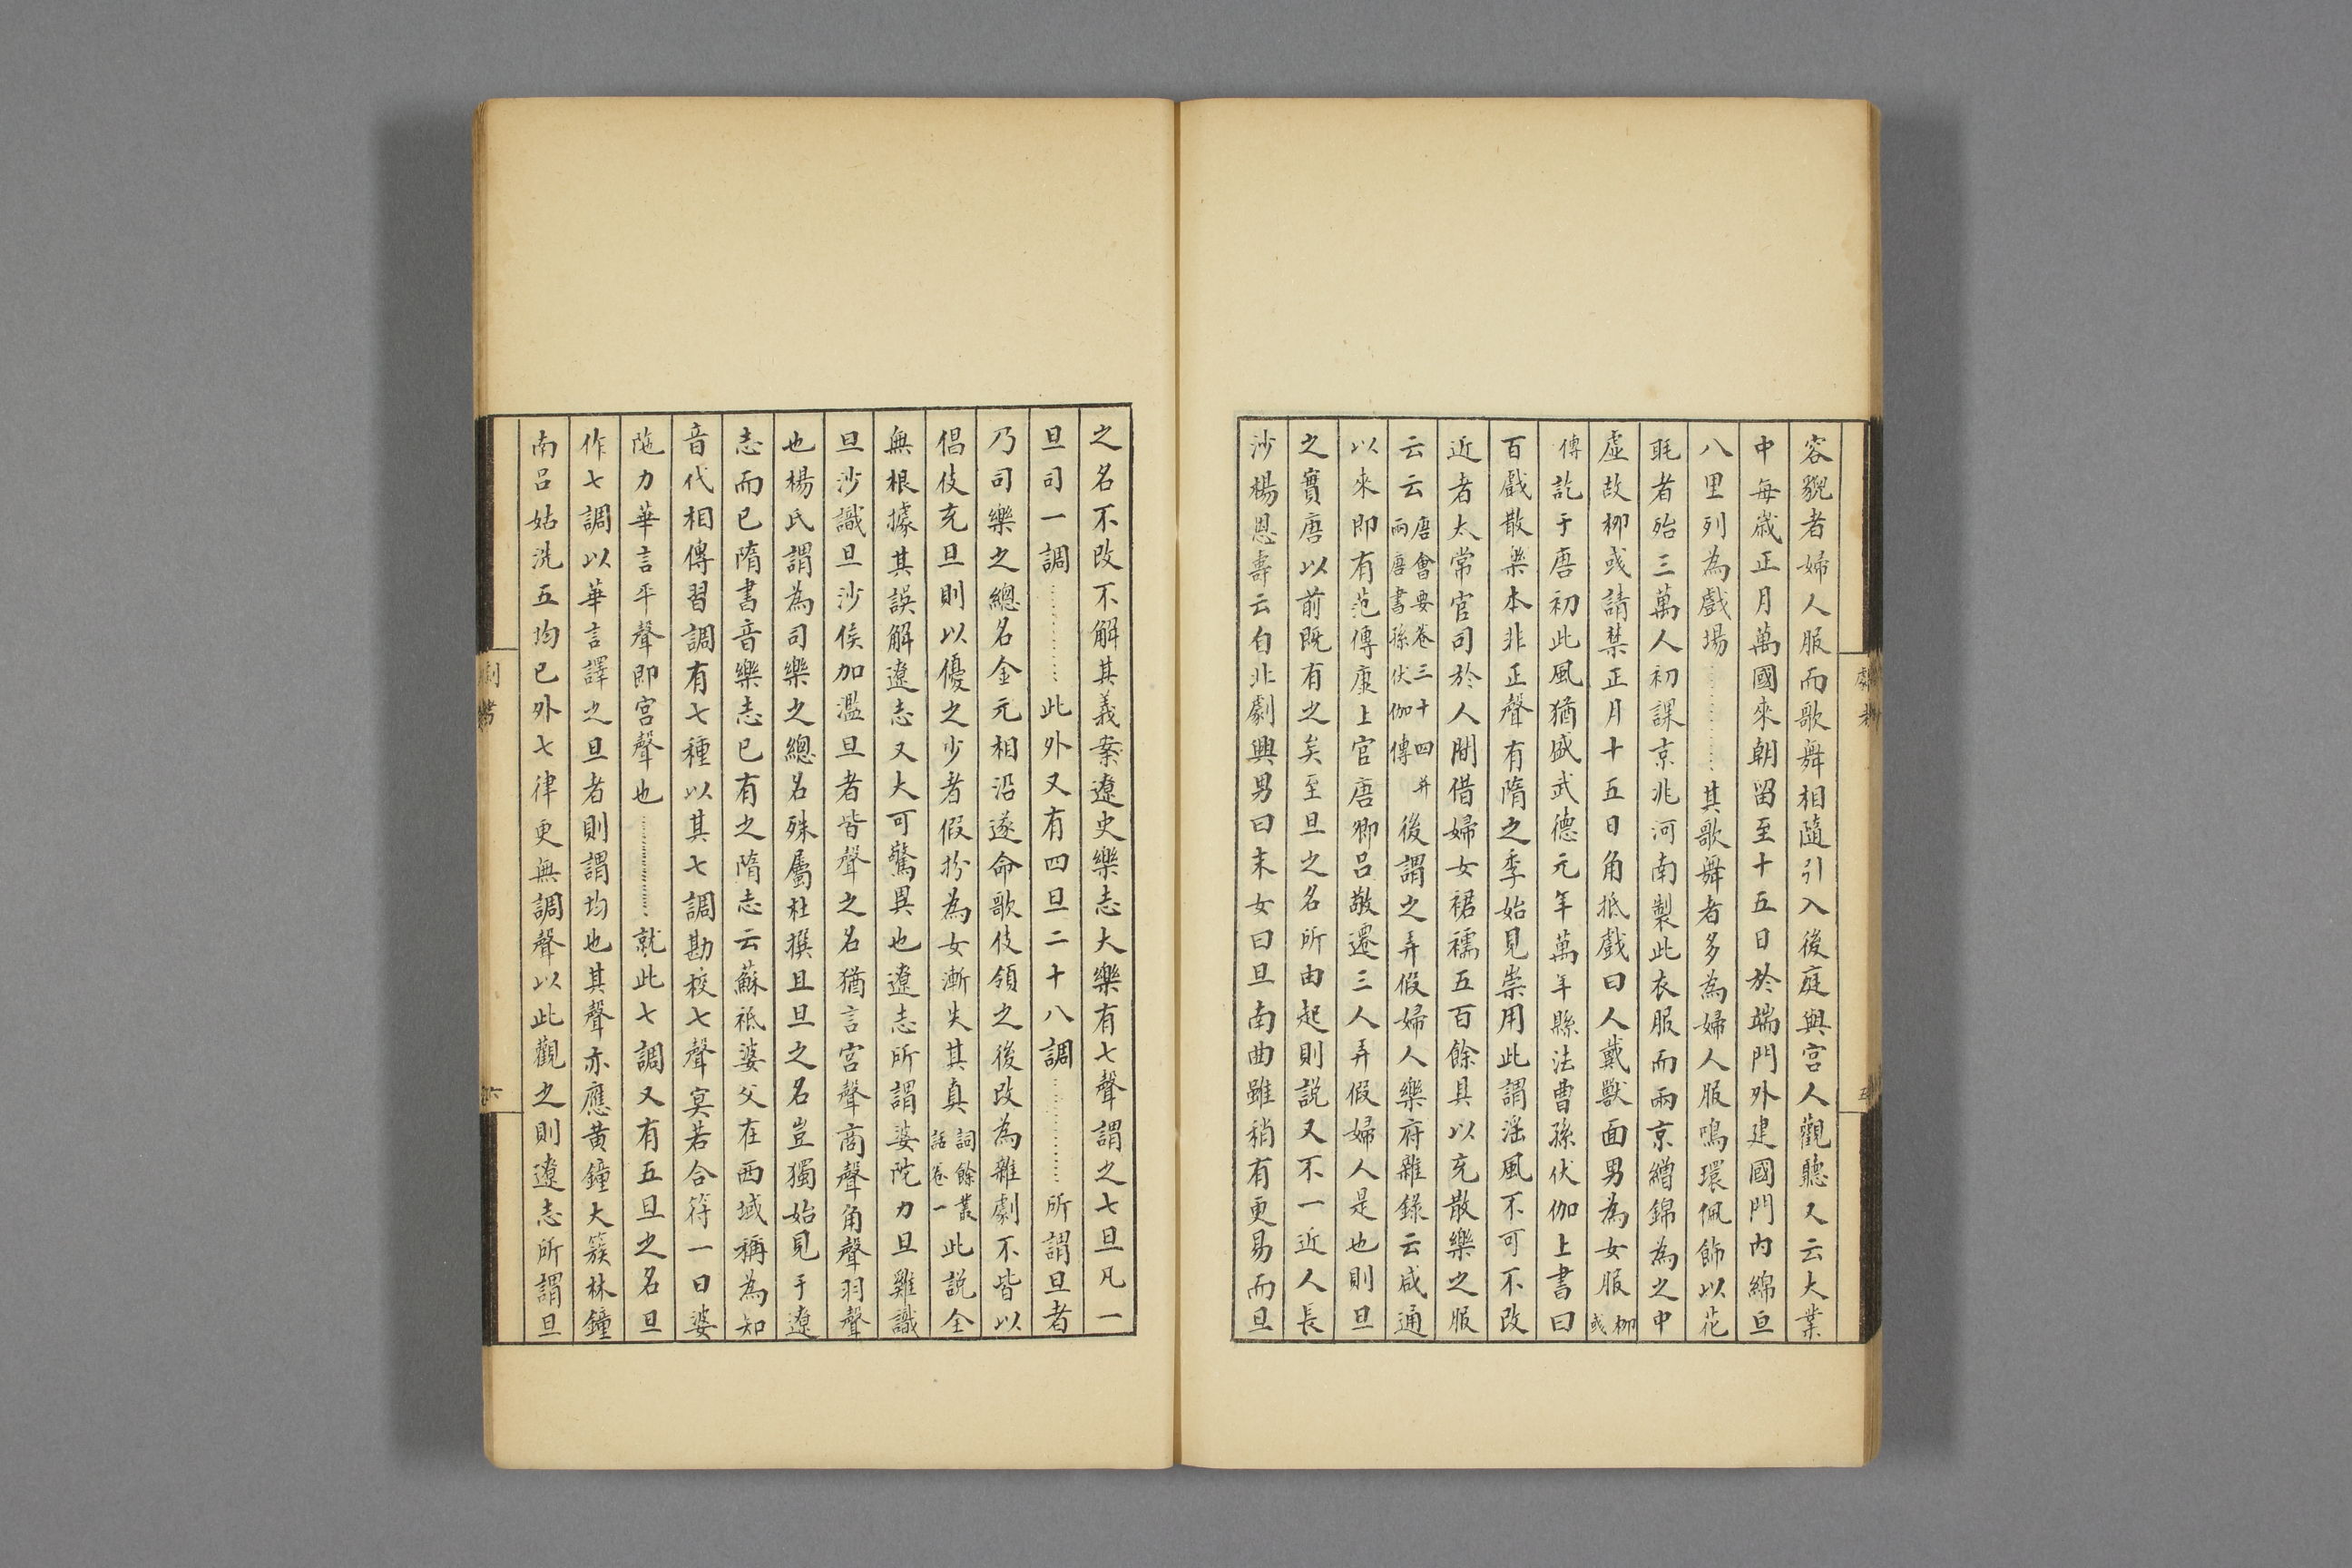 容貌者婦人服而歌舞相隨引入後庭與宮人觀聽又云大業
中每歲正月萬國來朝留至十五日於端門外建國門內綿亘
八里列為戲場…………其歌舞者多為婦人服鳴環佩飾以花
毦者殆三萬人初課京兆河南製此衣服而兩京繒錦為之中
虛故柳彧請禁正月十五日角抵戲曰人戴獸面男為女服柳彧
傳訖于唐初此風猶盛武德元年萬年縣法曹孫伏伽上書曰
百戲散樂本非正聲有隋之季始見崇用此謂淫風不可不改
近者太常官司於人間借婦女裙襦五百餘具以充散樂之服
云云唐會要卷三十四并兩唐書孫伏伽傳後謂之弄假婦人樂府雜錄云咸通
以來即有范傳康上官唐卿呂敬遷三人弄假婦人是也則旦
之實唐以前既有之矣至旦之名所由起則說又不一近人長
沙楊恩壽云自北劇興男曰末女曰旦南曲雖稍有更易而旦
劇考
五
之名不改不解其義案遼史樂志大樂有七聲謂之七旦凡一
旦司一調…………此外又有四旦二十八調…………所謂旦者
乃司樂之總名金元相沿遂命歌伎領之後改為雜劇不皆以
倡伎充旦則以優之少者假扮為女漸失其真詞餘叢話卷一此說全
無根據其誤解遼志又大可驚異也遼志所謂婆陀力旦雞識
旦沙識旦沙侯加濫旦者皆聲之名猶言宮聲商聲角聲羽聲
也楊氏謂為司樂之總名殊屬杜撰且旦之名豈獨始見于遼
志而已隋書音樂志已有之隋志云蘇祗婆父在西域稱為知
音代相傳習調有七種以其七調勘校七聲冥若合符一曰婆
陁力華言平聲即宮聲也…………就此七調又有五旦之名旦
作七調以華言譯之旦者則謂均也其聲亦應黃鐘大簇林鐘
南呂姑洗五均已外七律更無調聲以此觀之則遼志所謂旦
劇考
六